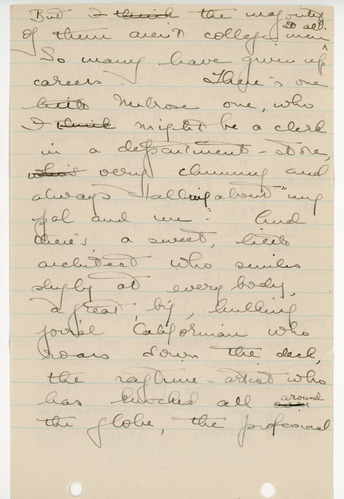 But I think the majority
of them aren't college men at all.
So many have given up
careers. There's one
little Melrose one, who
I think might be a clerk
in a department-store,
who's very chummy and
always talking about "my
pal and me". And
there's, a sweet, little
architect who smiles
shyly at every body,
a great, big, hulking
jovial Californian who
roars down the deck,
the ragtime-artist who
has knocked all around
the globe, the professional